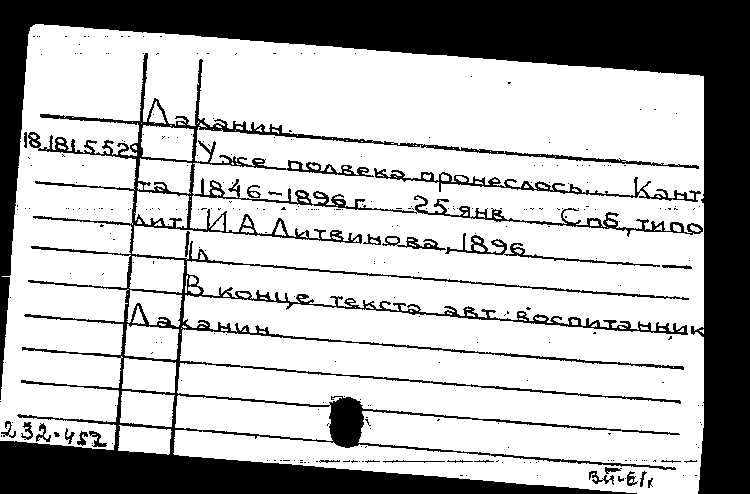 Лаханин.
18.181.5.529 Уже полвека пронеслось... Канта
та 1846-1896 г. 25 янв. Спб, типо
лит. И.А. Литвинова, 1896.
1л.
В конце текста авт.: воспитанник
Лаханин
232-457